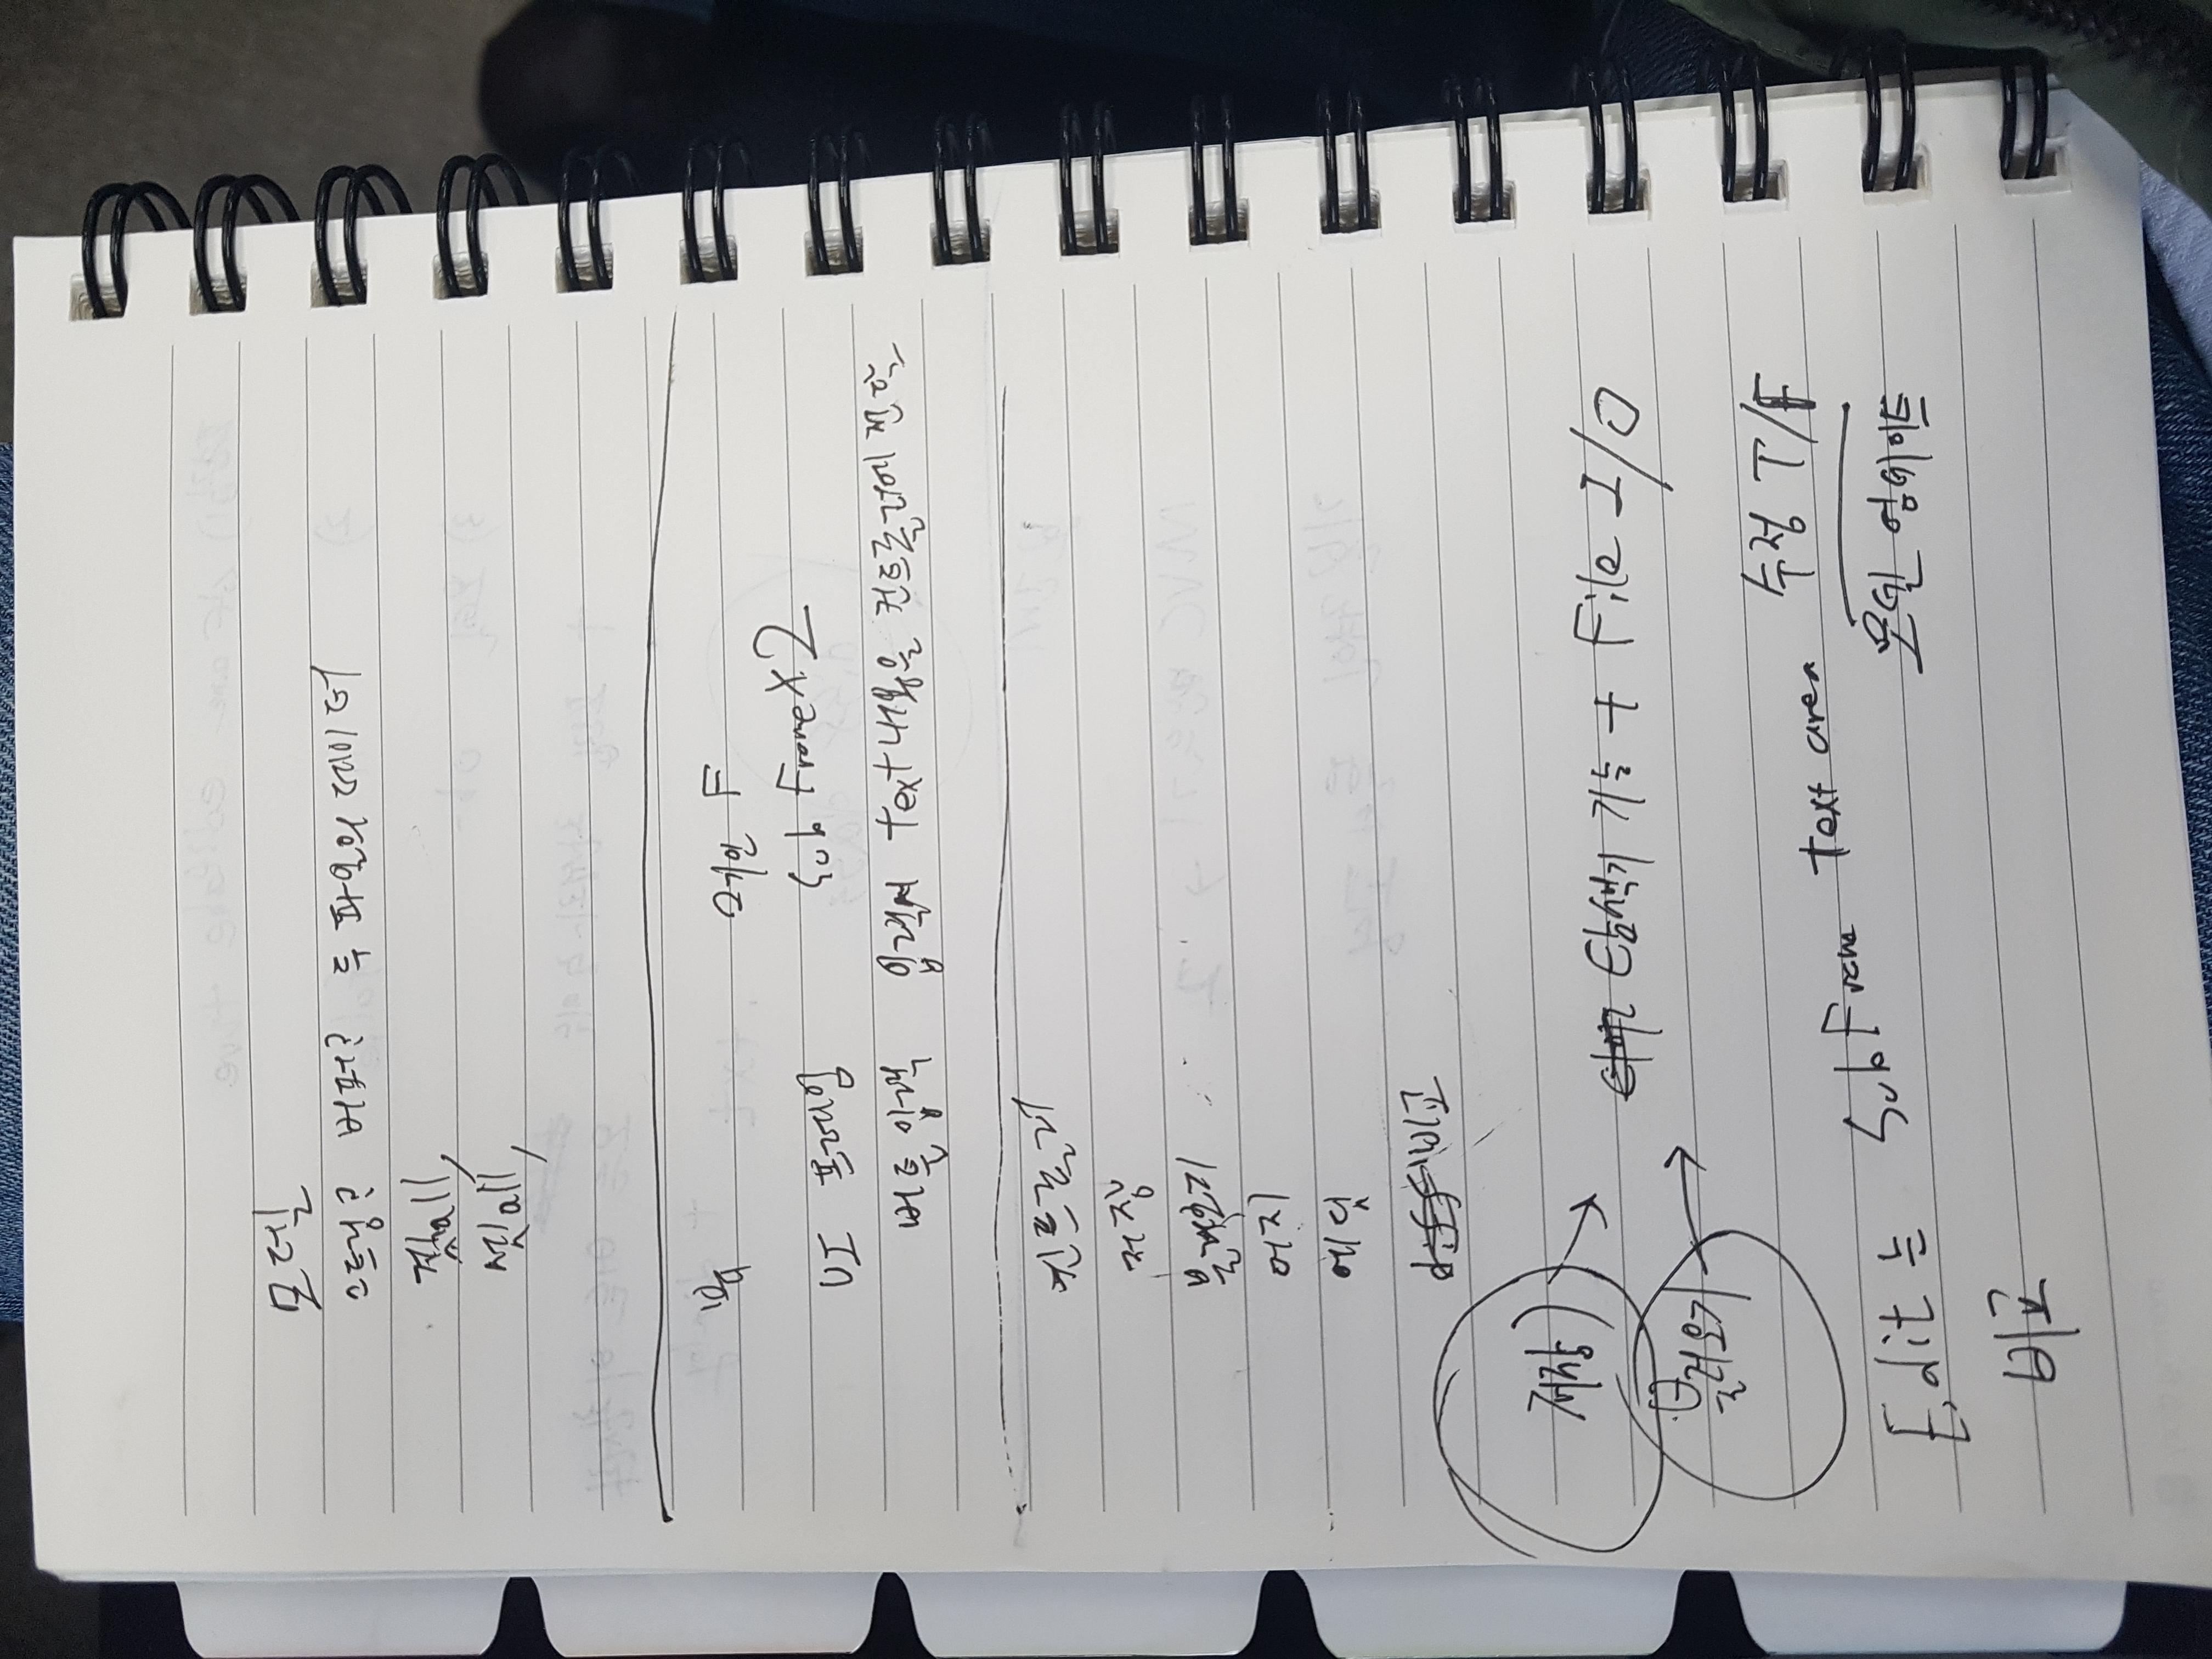 모델
스트링? 버퍼? 두 파일의 데이터
겟all,
셋all,
뷰 메인 F
Sub Frame X 2
UI 프레임
버튼입력 입력시 text내용을 컨트롤러에 전달
컨트롤러
저장
불러오기
머지
에딧
비교
저장)
탐색기 기능 + File I/O
불러오기
수정 T/F
Edit는 SubFrame text area
모델 업데이트
비교